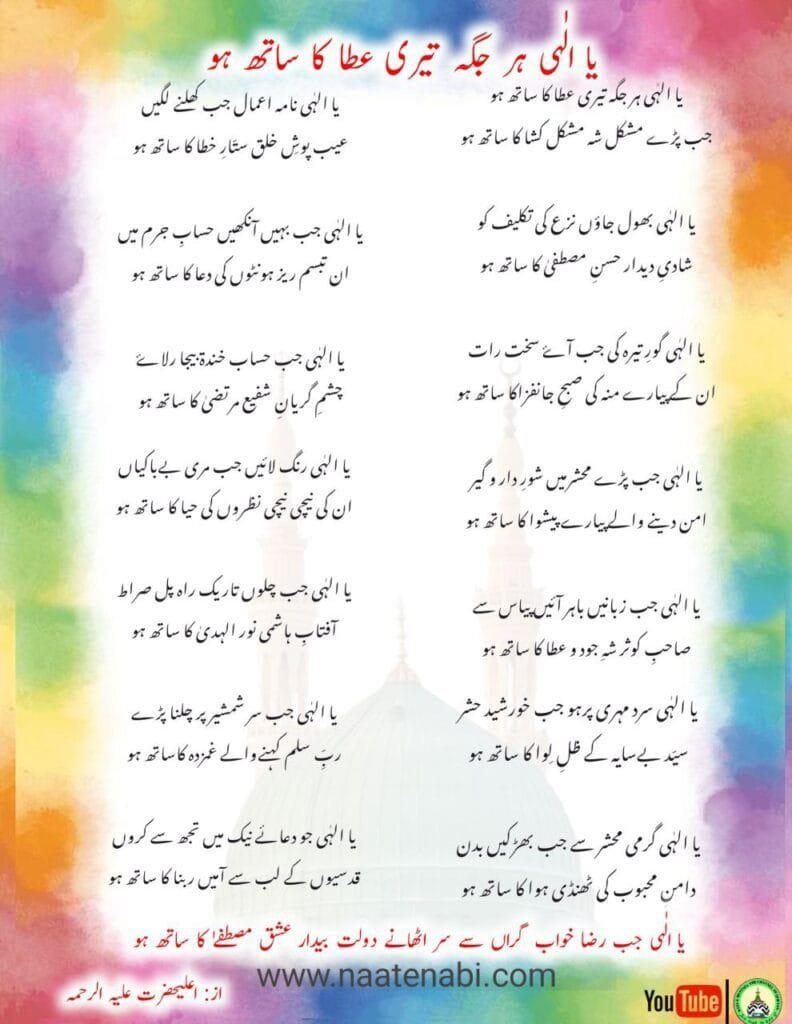 یا الٰہی ہر جگہ تیری عطا کا ساتھ ہو
یا الٰہی ہر جگہ تیری عطا کا ساتھ ہو
جب پڑے مشکل شہ مشکل کشا کا ساتھ ہو
یا الٰہی بھول جاؤں نزع کی تکلیف کو
شادیِ دیدار حسنِ مصطفیٰ کا ساتھ ہو
یا الٰہی گورِ تیرہ کی جب آئے سخت رات
ان کے پیارے منہ کی صبحِ جانفزا کا ساتھ ہو
یا الٰہی جب پڑے محشر میں شورِ دار و گیر
امن دینے والے پیارے پیشوا کا ساتھ ہو
یا الٰہی جب زبانیں باہر آئیں پیاس سے
صاحبِ کوثر شہِ جود و عطا کا ساتھ ہو
یا الٰہی سرد مہری پر ہو جب خورشید حشر
سیّد بے سایہ کے ظلِ لِوا کا ساتھ ہو
یا الٰہی گرمی محشر سے جب بھڑکیں بدن
دامنِ محبوب کی ٹھنڈی ہوا کا ساتھ ہو
یا الٰہی نامہ اعمال جب کھلنے لگیں
عیب پوشِ خلق ستّارِ خطا کا ساتھ ہو
یا الٰہی جب بہیں آنکھیں حسابِ جرم میں
ان تبسم ریز ہونٹوں کی دعا کا ساتھ ہو
یا الٰہی جب حساب خندۂ بیجا رلائے
چشمِ گریانِ شفیع مرتضیٰ کا ساتھ ہو
یا الٰہی رنگ لائیں جب مری بے باکیاں
ان کی نیچی نیچی نظروں کی حیا کا ساتھ ہو
یا الٰہی جب چلوں تاریک راہ پل صراط
آفتابِ ہاشمی نور الہدیٰ کا ساتھ ہو
یا الٰہی جب سر شمشیر پر چلنا پڑے
ربِّ سلم کہنے والے غمزدہ کا ساتھ ہو
یا الٰہی جو دعائے نیک میں تجھ سے کروں
قدسیوں کے لب سے آمیں ربنا کا ساتھ ہو
یا الٰہی جب رضا خواب گراں سے سر اٹھانے دولت بیدار عشق مصطفےٰ کا ساتھ ہو
www.naatenabi.com
از: اعلیحضرت علیہ الرحمہ
YouTube